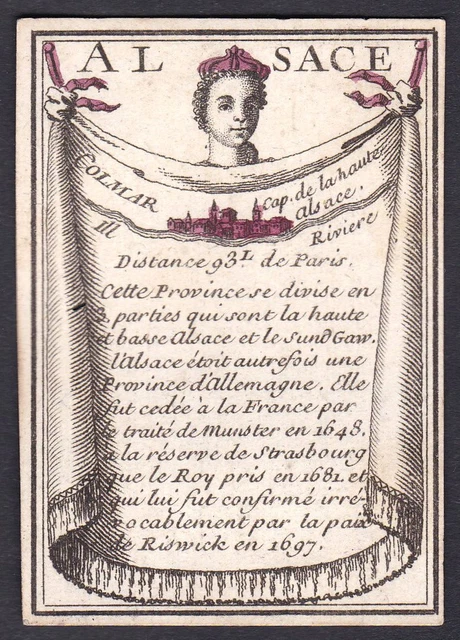 ALSACE
COLMAR Cap. de la haute
alsace.
Ill Riviere
Distance 93L de Paris.
Cette Province se divise en
parties qui sont la haute
et basse Alsace et le Sund Gaw.
l'Alsace étoit autrefois une
Province d'Allemagne. Elle
fut cedée à la France par
le traité de Munster en 1648.
à la réserve de Strasbourg
que le Roy pris en 1681. et
qui lui fut confirmé irré-
vocablement par la paix
de Riswick en 1697.